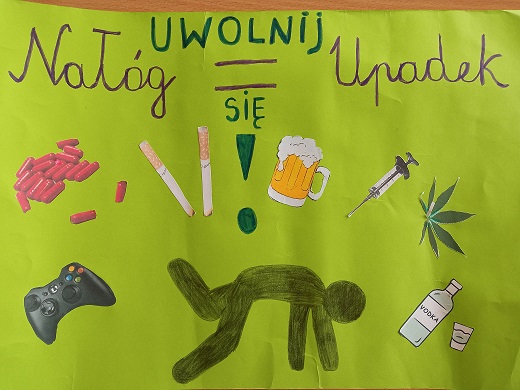 UWOLNIJ
Nałóg = Upadek
SIĘ
!
VODKA